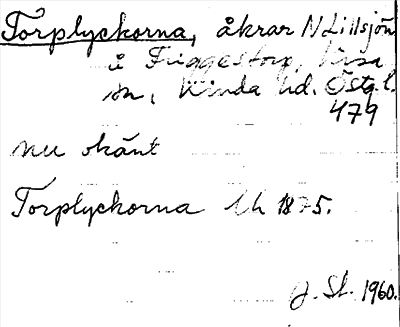 Torplyckorna, åkrar N Lillsjön
å Friggestorp, Tirsa
sn, Kinda hd. Östgl.
479
nu okänt
Torplyckorna Uh 1875.
J. St. 1960.